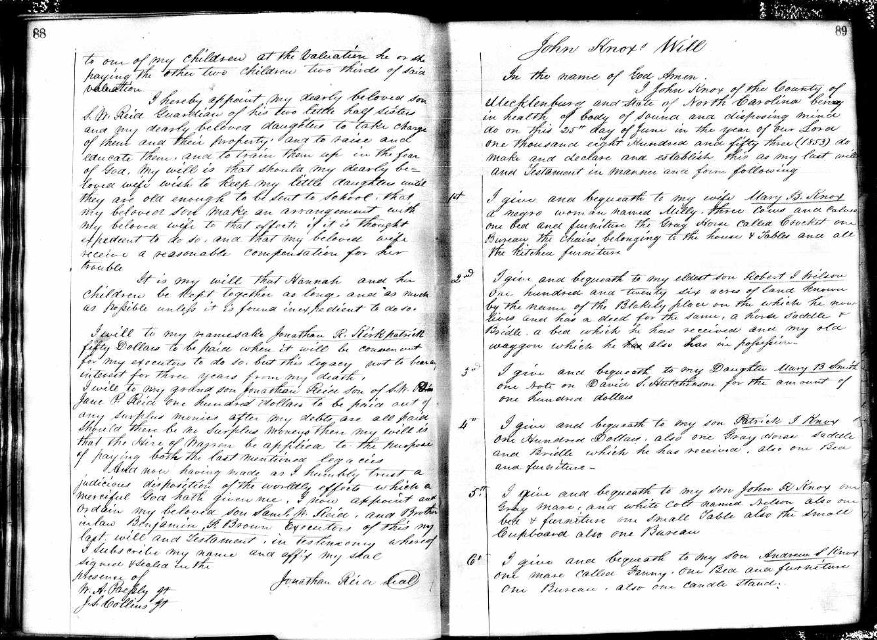 88
to one of my children at the valuation he or she
paying the other two children two thirds of said
valuation
I hereby appoint my dearly beloved son
S. W. Reid Guardian of his two little half sisters
and my dearly beloved daughters to take charge
of them and their property and to raise and
educate them, and to train them up in the fear
of God. My will is that should my dearly be-
loved wife wish to keep my little daughters until
they are old enough to be sent to School, that
my beloved Son make an arrangement with
my beloved wife to that effect, if it is thought
expedient to do so, and that my beloved wife
receive a reasonable compensation for her
trouble
It is my will that Hannah and her
children be kept together as long and as much
as possible unless it is found inexpedient to do so.
I will to my namesake Jonathan R. Kirkpatrick
fifty Dollars to be paid when it will be convenient
for my executors to do so, but this legacy not to bear
interest for three years from my death.
I will to my grand son Jonathan Reid son of
Jane P. Reid one hundred dollars to be paid out of
any surplus monies after my debts are all paid
Should there be no Surplus moneys then my will is
that the hire of Warren be applied to the purpose
of paying both the last mentioned legacies
And now having made as I humbly trust a
judicious disposition of the worldly effects which a
merciful God hath given me, I now appoint and
ordain my beloved son Saml. W. Reid, and Brother
in law Benjamin F. Brown Executors of this my
last will and Testament. in testimony whereof
I subscribe my name and affix my seal
signed & sealed in the
presence of
Jonathan Reid Seal
J. S. Collins Jt
89
John Knox' Will
In the name of God Amen.
I John Knox of the County of
Mecklenburg and State of North Carolina being
in health of body of sound and disposing mind
do on this 25th day of June in the year of our Lord
one thousand eight Hundred and fifty three (1853) do
make and declare and establish this as my last will
and Testament in manner and form following
1st I give and bequeath to my wife Mary B. Knox
a negro woman named Milly, three Cows and Calves
one bed and furniture the Gray Horse called Crocket one
Bureau the Chairs belonging to the house & Tables and all
the Kitchen furniture
2nd I give and bequeath to my eldest son Robert I Wilson
One hundred and twenty six acres of land known
by the name of the Blakely place on the which he now
lives and has a deed for the same, a horse Saddle &
Bridle, a bed which he has received and my old
waggon which he has also has in possession.
3rd I give and bequeath to my Daughter Mary B Smith
one Note on David S. Hutchinson for the amount of
one hundred dollars
4th I give and bequeath to my son Patrick I Knox
One Hundred Dollars, also one Gray horse Saddle
and Bridle which he has received, also one Bed
and furniture -
5th I give and bequeath to my son John R Knox one
Gray mare, and white Colt named Nelson also one
bed & furniture one Small Table also the small
Cupboard also one Bureau
6th I give and bequeath to my son Andrew S Knox
one mare called Fanny. One Bed and furniture
One Bureau, also one candle Stand.